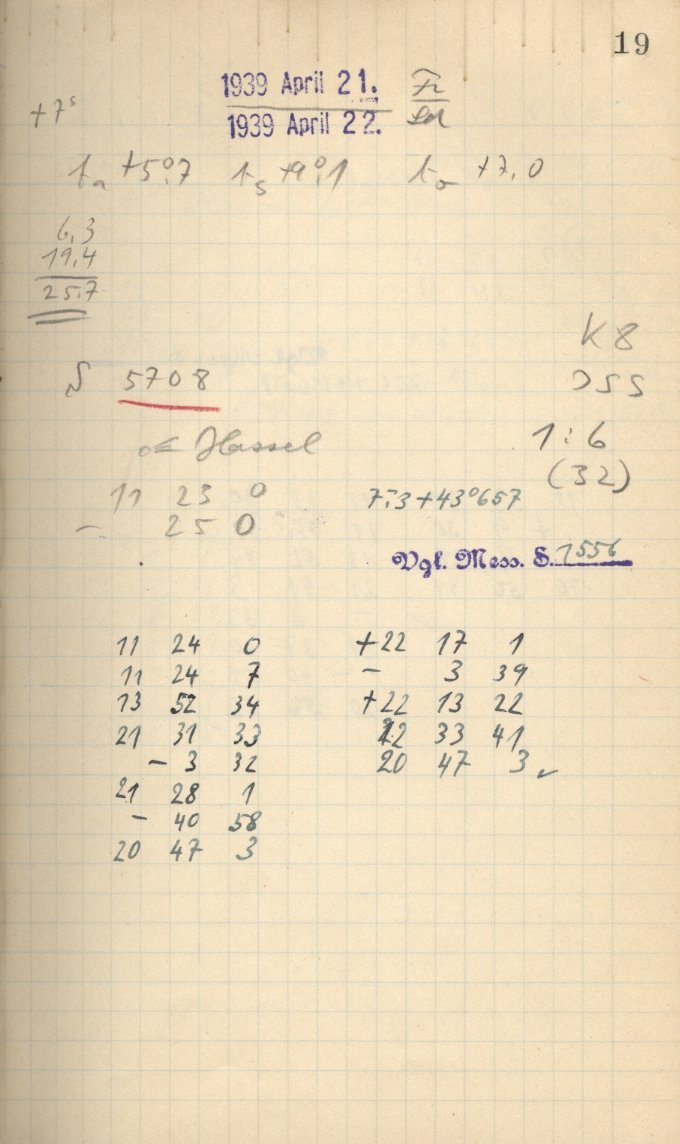 19
1939 April 21. Fr
1939 April 22.
+7ˢ
tₐ +5°,7 tₛ +9°,1 t +7,0
6,3
19,4
25,7
K8
S 5708
DSS
Hassel
1:6
(32)
11 23 0
7,3+43°657
- 25 0
Vgl. Mess. S. 1556
11 24 0 +22 17 1
11 24 7 - 3 39
13 52 34 +22 13 22
21 31 33 22 33 41
- 3 32 20 47 3 ✓
21 28 1
- 40 58
20 47 3